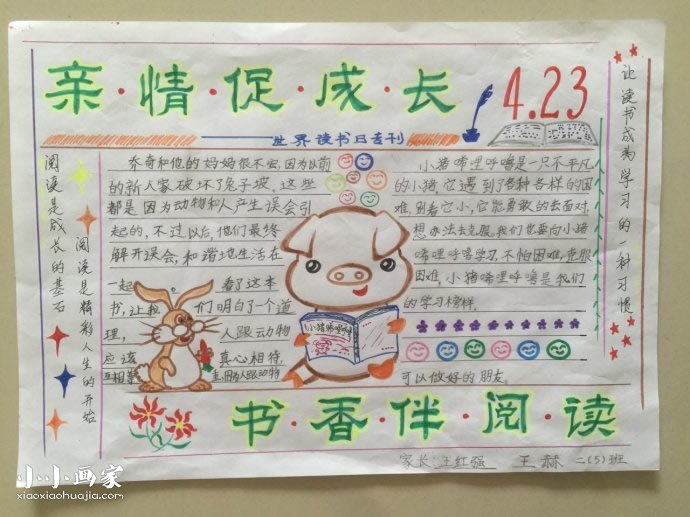 亲·情·促·成·长
4.23
世界读书日专刊
让读书成为学习的一种习惯
阅读是成长的基石
阅读是精彩人生的开始
乔奇和他的妈妈很不安,因为以前
的新人家破坏了兔子坡。这些
都是因为动物和人产生误会引
起的,不过以后,他们最终
解开误会,和谐地生活在
一起。看了这本
书,让我们明白了一个道
理,人跟动物
应该真心相待,
互相
人跟动物
可以做好的朋友。
小猪唏哩呼噜是一只不平凡
的小猪,它遇到了各种各样的困
难,别看它小,它能勇敢的去面对,
想办法去克服。我们也要向小猪
唏哩呼噜学习,不怕困难,克服
困难。小猪唏哩呼噜是我们
的学习榜样。
小猪唏哩呼噜
书·香·伴·阅·读
家长:王红强 王赫 二(5)班
小小画家
xiaoxiaohuajia.com